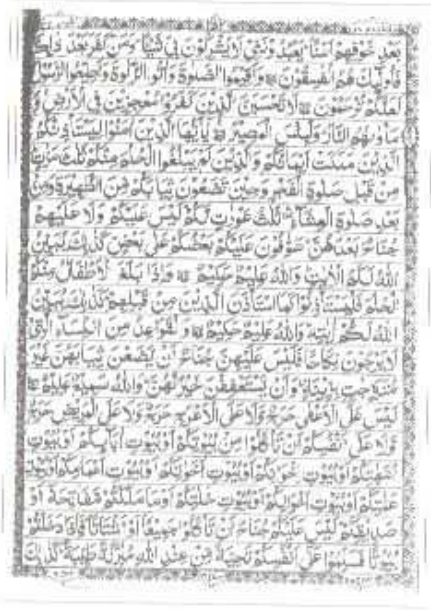 بعد خوفهم امنا يعبدوننى لا يشركون بى شيئا ومن كفر بعد ذلك
فاولئك هم الفسقون واقيموا الصلوة واتوا الزكوة واطيعوا الرسول
لعلكم ترحمون لا تحسبن الذين كفروا معجزين فى الارض و
ماوىهم النار ولبئس المصير يايها الذين امنوا ليستاذنكم
الذين ملكت ايمانكم والذين لم يبلغوا الحلم منكم ثلث مرت
من قبل صلوة الفجر وحين تضعون ثيابكم من الظهيرة ومن
بعد صلوة العشاء ثلث عورت لكم ليس عليكم ولا عليهم
جناح بعدهن طوفون عليكم بعضكم على بعض كذلك يبين
الله لكم الايت والله عليم حكيم واذا بلغ الاطفال منكم
الحلم فليستاذنوا كما استاذن الذين من قبلهم كذلك يبين
الله لكم ايته والله عليم حكيم والقواعد من النساء التى
لا يرجون نكاحا فليس عليهن جناح ان يضعن ثيابهن غير
متبرجت بزينة وان يستعففن خير لهن والله سميع عليم
ليس على الاعمى حرج ولا على الاعرج حرج ولا على المريض حرج
ولا على انفسكم ان تاكلوا من بيوتكم او بيوت ابائكم او بيوت
امهتكم او بيوت اخوانكم او بيوت اخوتكم او بيوت اعمامكم او بيوت
عمتكم او بيوت اخوالكم او بيوت خلتكم او ما ملكتم مفاتحه او
صديقكم ليس عليكم جناح ان تاكلوا جميعا او اشتاتا فاذا دخلتم
بيوتا فسلموا على انفسكم تحية من عند الله مبركة طيبة كذلك